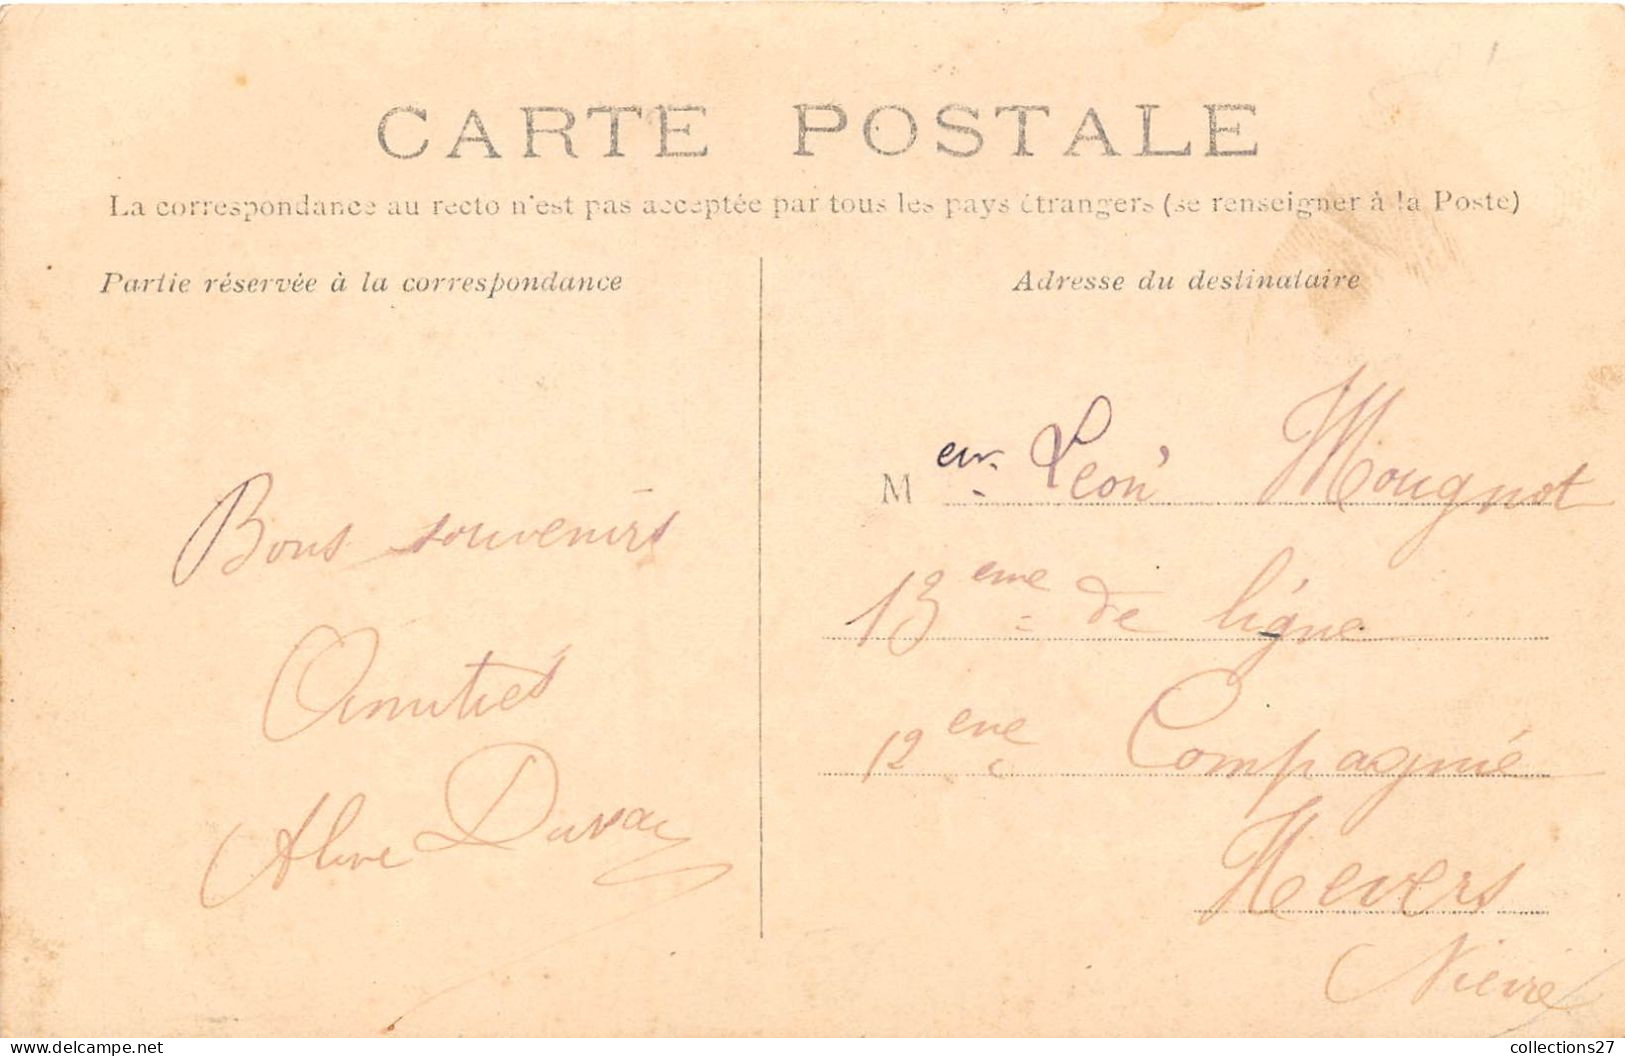 CARTE POSTALE
La correspondance au recto n'est pas acceptée par tous les pays étrangers (se renseigner à la Poste)
Partie réservée à la correspondance
Adresse du destinataire
Bons souvenirs
Amitiés
M eur Léon Mougnot
13 eme de ligne
12 eme Compagnie
Nevers
Nièvre
www.delcampe.net
collections27